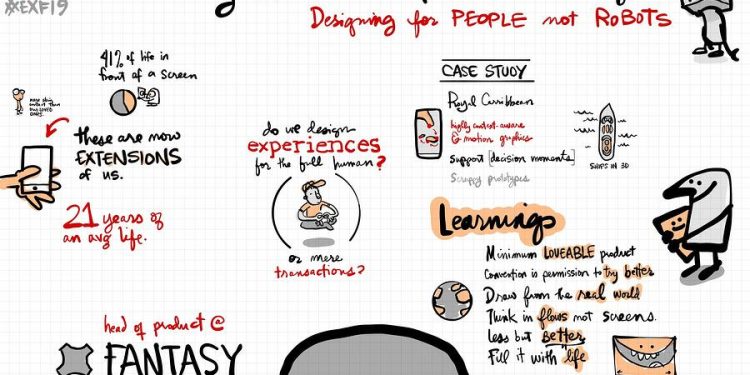 #EXF19
Designing for PEOPLE not ROBOTS
41% of life in
front of a screen
more skin
contact than
our LOVED
ONES.
these are now
EXTENSIONS
of us.
21 years of
an avg life.
do we design
experiences
for the full human?
or mere
transactions?
CASE STUDY
Royal Carribbean
highly context-aware
& motion graphics
support [decision moments]
Scrappy prototypes
SHIPS IN 3D
Learnings
Minimum LOVEABLE product
Convention is permission to try better
Draw from the real world
Think in flows not screens.
Less but BETTER
Fill it with life
head of product @
FANTASY